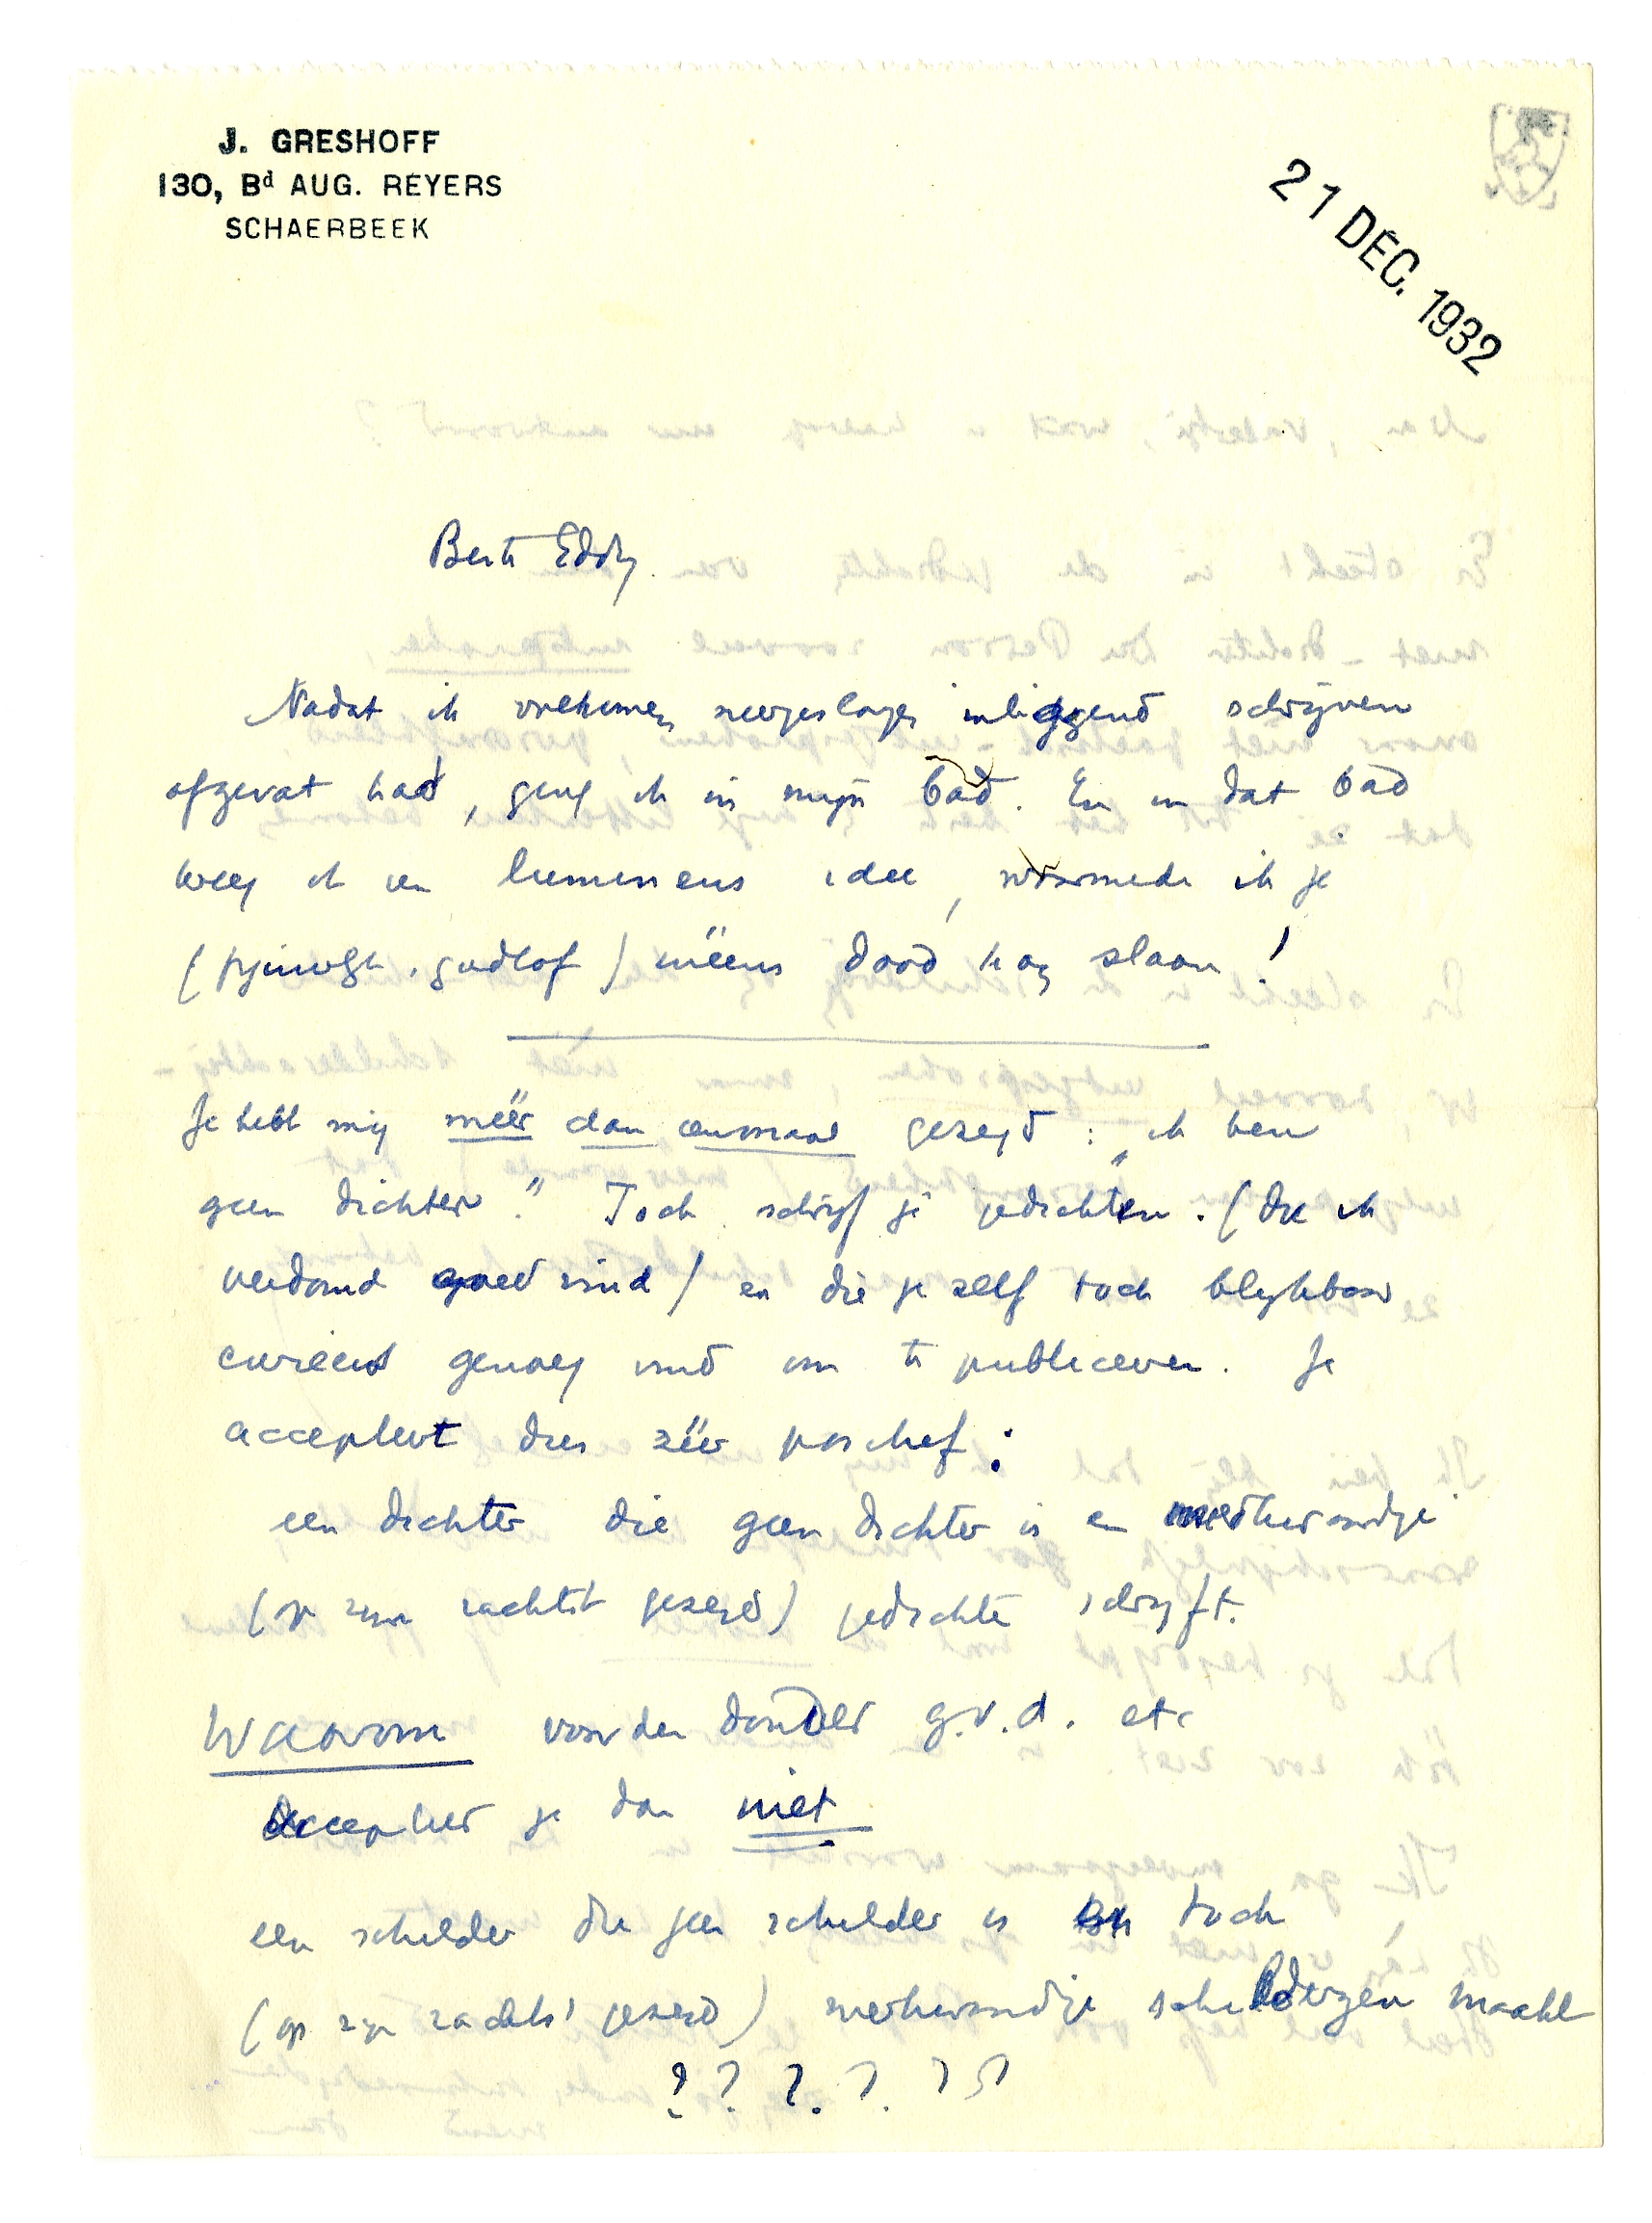 J. GRESHOFF
130, Bd AUG. REYERS
SCHAERBEEK
21 DEC. 1932
Beste Eddy.
Nadat ik volkomen neergeslagen inliggend schrijven
afgevat had, ging ik in mijn bad. En in dat bad
kreeg ik een lumineus idee, waarmede ik je
(pijnloos, godlof) inéens dood kan slaan!
Je hebt mij méér dan eenmaal gezegd: „ik ben
geen dichter." Toch schrijf je gedichten. (die ik
verdomd goed vind) en die je zelf toch blijkbaar
curieus genoeg vind om te publiceeren. Je
accepteert dus zéér positief:
een dichter die geen dichter is en merkwaardige
(op zijn zachtst gezegd) gedichten schrijft.
Waarom voor den donder g.v.d. etc
accepteer je dan niet
een schilder die geen schilder is en toch
(op zijn zachtst gezegd) merkwaardige schilderijen maakt
? ? ? ? ? ?